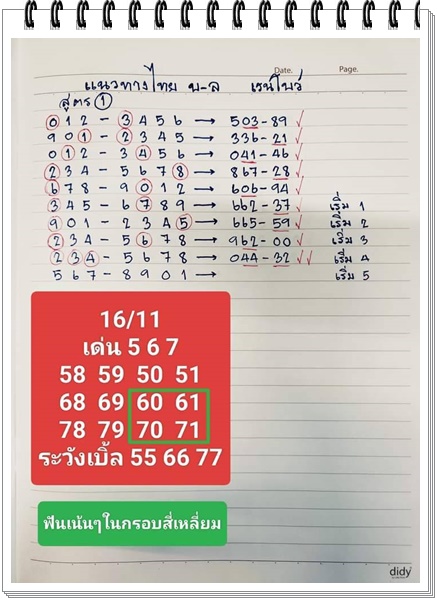 Date. Page.
แนวทางไทย บ-ล เรนโบว์
สูตร 1
012 - 3456 → 503-89 ✓
901 - 2345 → 336-21 ✓
012 - 3456 → 041-46 ✓
234 - 5678 → 867-28 ✓
678 - 9012 → 606-94 ✓
345 - 6789 → 662-37 ✓ เริ่ม 1
901 - 2345 → 665-59 ✓ เริ่ม 2
234 - 5678 → 962-00 ✓ เริ่ม 3
234 - 5678 → 044-32 ✓✓ เริ่ม 4
567 - 8901 → เริ่ม 5
16/11
เด่น 5 6 7
58 59 50 51
68 69 60 61
78 79 70 71
ระวังเบิ้ล 55 66 77
ฟันเน้นๆในกรอบสี่เหลี่ยม
didy